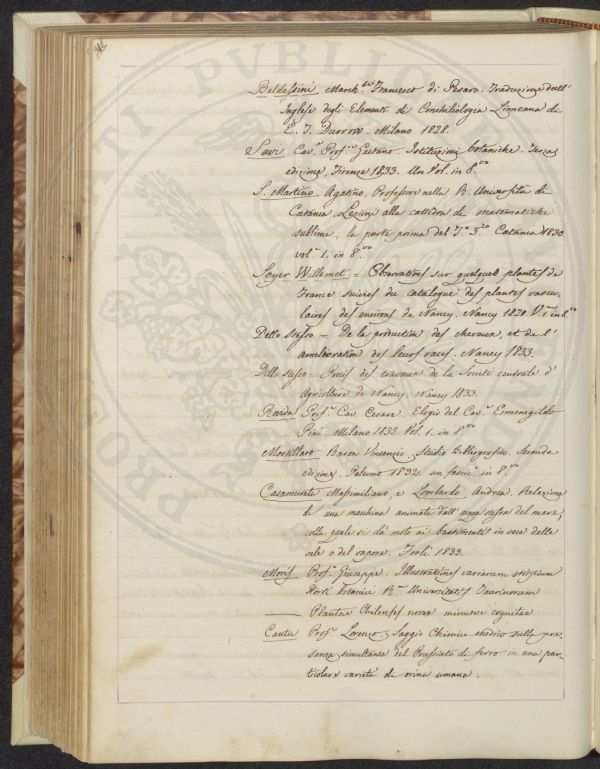 Baldassini March.se Francesco di Pesaro. Traduzione dall'
Inglese degli Elementi di Conchiliologia Linneana di
E. J. Burrow. Milano 1828.
Savi Cav.r Prof.re Gaetano. Istituzioni botaniche. Terza
edizione, Firenze 1833. Un Vol. in 8.vo
S. Martino Agatino, Professore nella R. Università di
Catania. Lezioni alla cattedra di matematiche
sublime, la parte prima del T.o 3.zo Catania 1830
vol. 1. in 8.vo
Soyer Willemet = Observations sur quelques plantes de
France suivies du catalogue des plantes vascu-
laires des environs de Nancy. Nancy 1828. V. 1 in 8.vo
Detto stesso = De la production des chevaux, et de l'
amelioration des leurs races. Nancy 1833.
Detto stesso = Precis des travaux de la Societé centrale d'
Agricolture de Nancy. Nancy 1833.
Rovida Prof.r Cav. Cesare. Elogio del Cav.r Ermenegildo
Pini. Milano 1832 Vol. 1. in 8.vo
Mortillaro Baron Vincenzo. Studio Bibliografico. Seconda
edizione. Palermo 1832, un fasci. in 8.vo
Casamurata Massimiliano, e Lombardo Andrea. Relazione
di una machina animata dall' acqua stessa del mare;
colla quale si dà moto ai bastimenti in vece delle
vele o del vapore. Forlì 1833.
Moris Prof.r Giuseppe. Illustrationes variarum stirpium
Horti botanici R. Universitatis Taurinorum
Plantae Chilenses novae minusve cognitae
Cantu Prof.r Lorenzo, Saggio Chimico-medico sulla pre-
senza simultanea del Prussiato di ferro in una par-
ticolare varietà di orina umana.